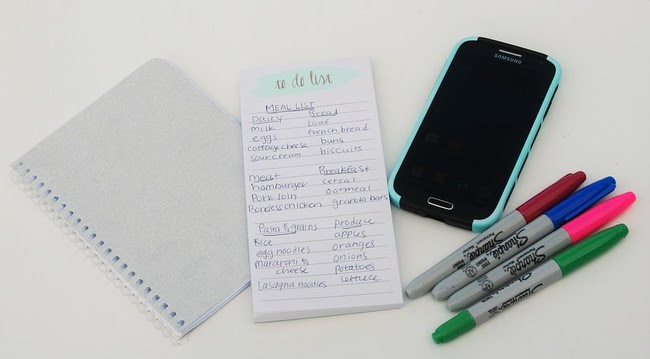 to do list
MEAL LIST
Dairy Bread
milk loaf
eggs french bread
cottage cheese buns
sour cream biscuits
meat Breakfast
hamburger cereal
Pork loin oatmeal
Boneless chicken granola bars
Pasta & grains produce
Rice apples
egg noodles oranges
macaroni & onions
cheese Potatoes
Lasagna noodles lettuce
SAMSUNG
Sharpie
Sharpie
Sharpie
Sharpie